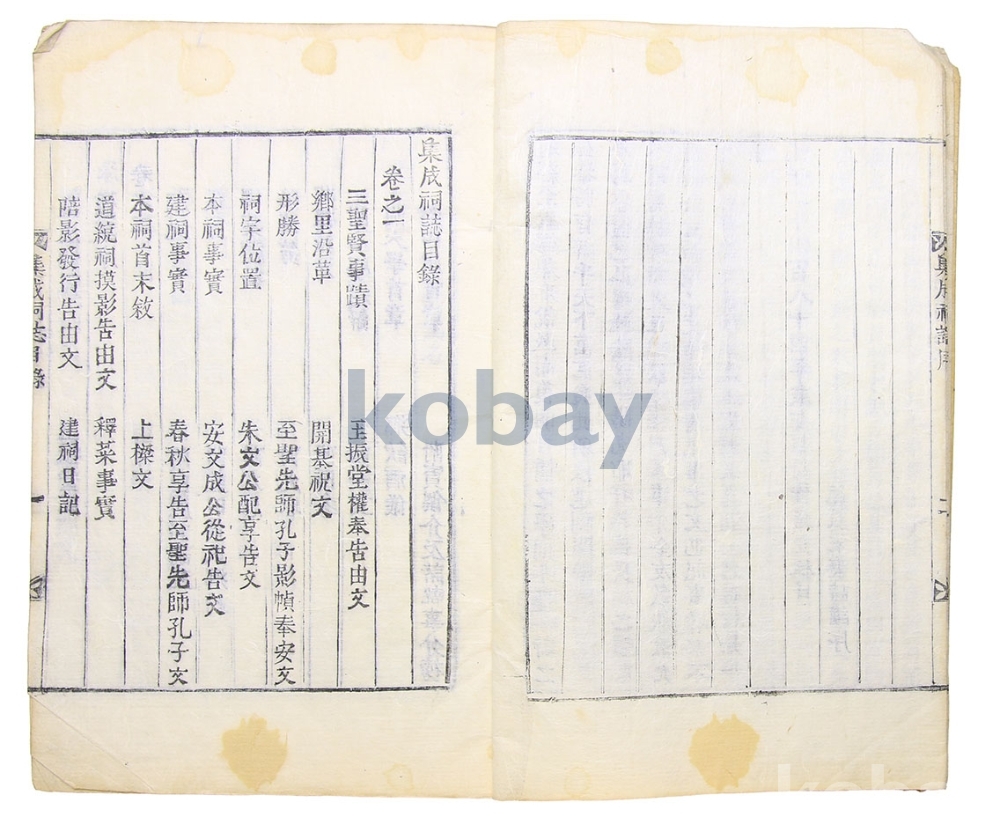 集成祠誌序
二
集成祠誌目錄
卷之一
三聖賢事蹟 玉振堂權奉告由文
鄉里沿革 開基祝文
形勝 至聖先師孔子影幀奉安文
祠宇位置 朱文公配享告文
本祠事實 安文成公從祀告文
建祠事實 春秋享告至聖先師孔子文
本祠首末敘 上樑文
道統祠摸影告由文 釋菜事實
陪影發行告由文 建祠日記
集成祠誌目錄
一
kobay
koba